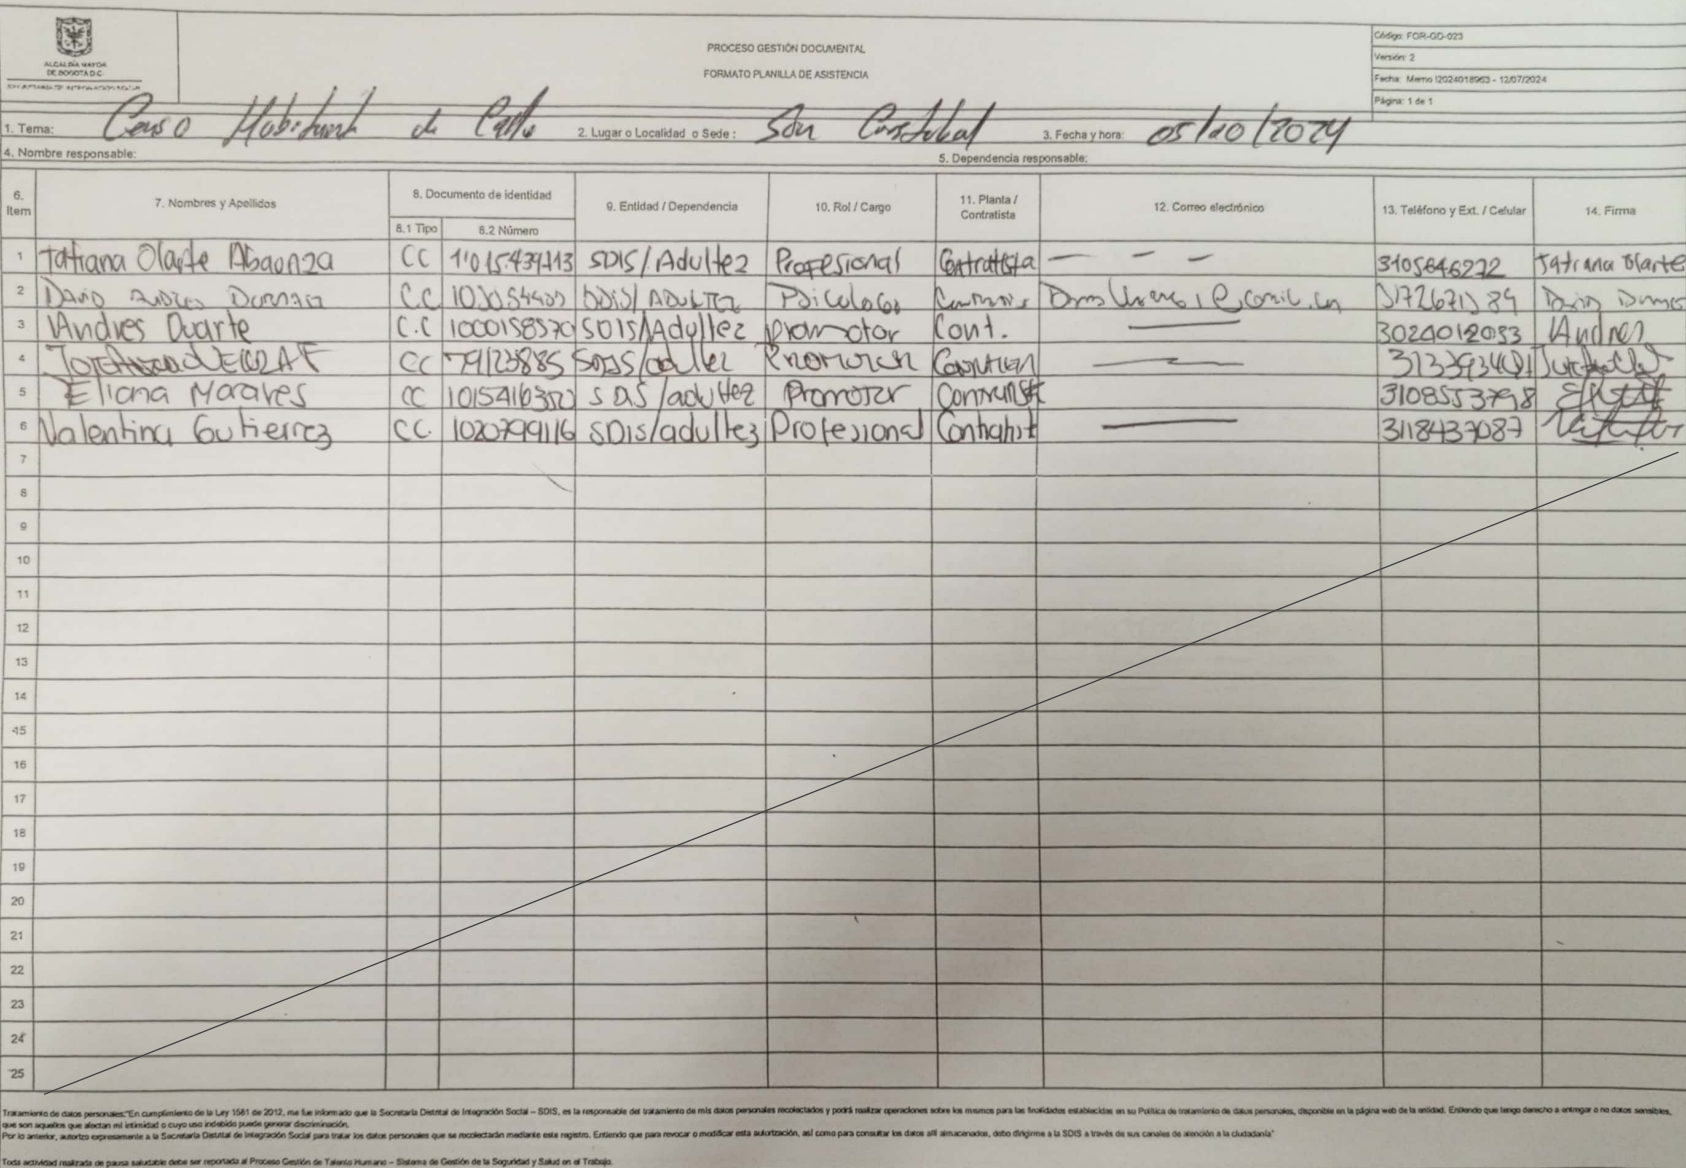 ALCALDÍA MAYOR
DE BOGOTÁ D.C.
PROCESO GESTIÓN DOCUMENTAL
FORMATO PLANILLA DE ASISTENCIA
Código: FOR-GD-023
Versión: 2
Fecha: Memo I2024018963 - 12/07/2024
Página: 1 de 1
1. Tema: Censo Habitante de Calle 2. Lugar o Localidad o Sede: San Cristobal 3. Fecha y hora: 05/10/2024
4. Nombre responsable: 5. Dependencia responsable:
6. Item 7. Nombres y Apellidos 8. Documento de identidad 9. Entidad / Dependencia 10. Rol / Cargo 11. Planta / Contratista 12. Correo electrónico 13. Teléfono y Ext. / Celular 14. Firma
8.1 Tipo 8.2 Número
1 Tatiana Olarte Abaonza CC SDIS/Adultez Profesional Contratista — — — 3105646272 Tatiana Olarte
2 David C.C SDIS/ADULTEZ Psicologo David
3 Andres Duarte C.C 1000158570 SDIS/Adultez Promotor Cont. — Andres
4 CC 79123885 SDIS/adultez —
5 Eliana Morales CC SDIS/adultez Promotor 3108553798
6 Valentina Gutierrez CC. 1020799116 SDIS/adultez Profesional Contratist — 3118437087
7
8
9
10
11
12
13
14
15
16
17
18
19
20
21
22
23
24
25
Tratamiento de datos personales:"En cumplimiento de la Ley 1581 de 2012, me fue informado que la Secretaría Distrital de Integración Social – SDIS, es la responsable del tratamiento de mis datos personales recolectados y podrá realizar operaciones sobre los mismos para las finalidades establecidas en su Política de tratamiento de datos personales, disponible en la página web de la entidad. Entiendo que tengo derecho a entregar o no datos sensibles,
que son aquellos que afectan mi intimidad o cuyo uso indebido puede generar discriminación.
Por lo anterior, autorizo expresamente a la Secretaría Distrital de Integración Social para tratar los datos personales que se recolectarán mediante este registro. Entiendo que para revocar o modificar esta autorización, así como para consultar los datos allí almacenados, debo dirigirme a la SDIS a través de sus canales de atención a la ciudadanía"
Toda actividad realizada de pausa saludable debe ser reportada al Proceso Gestión de Talento Humano – Sistema de Gestión de la Seguridad y Salud en el Trabajo.